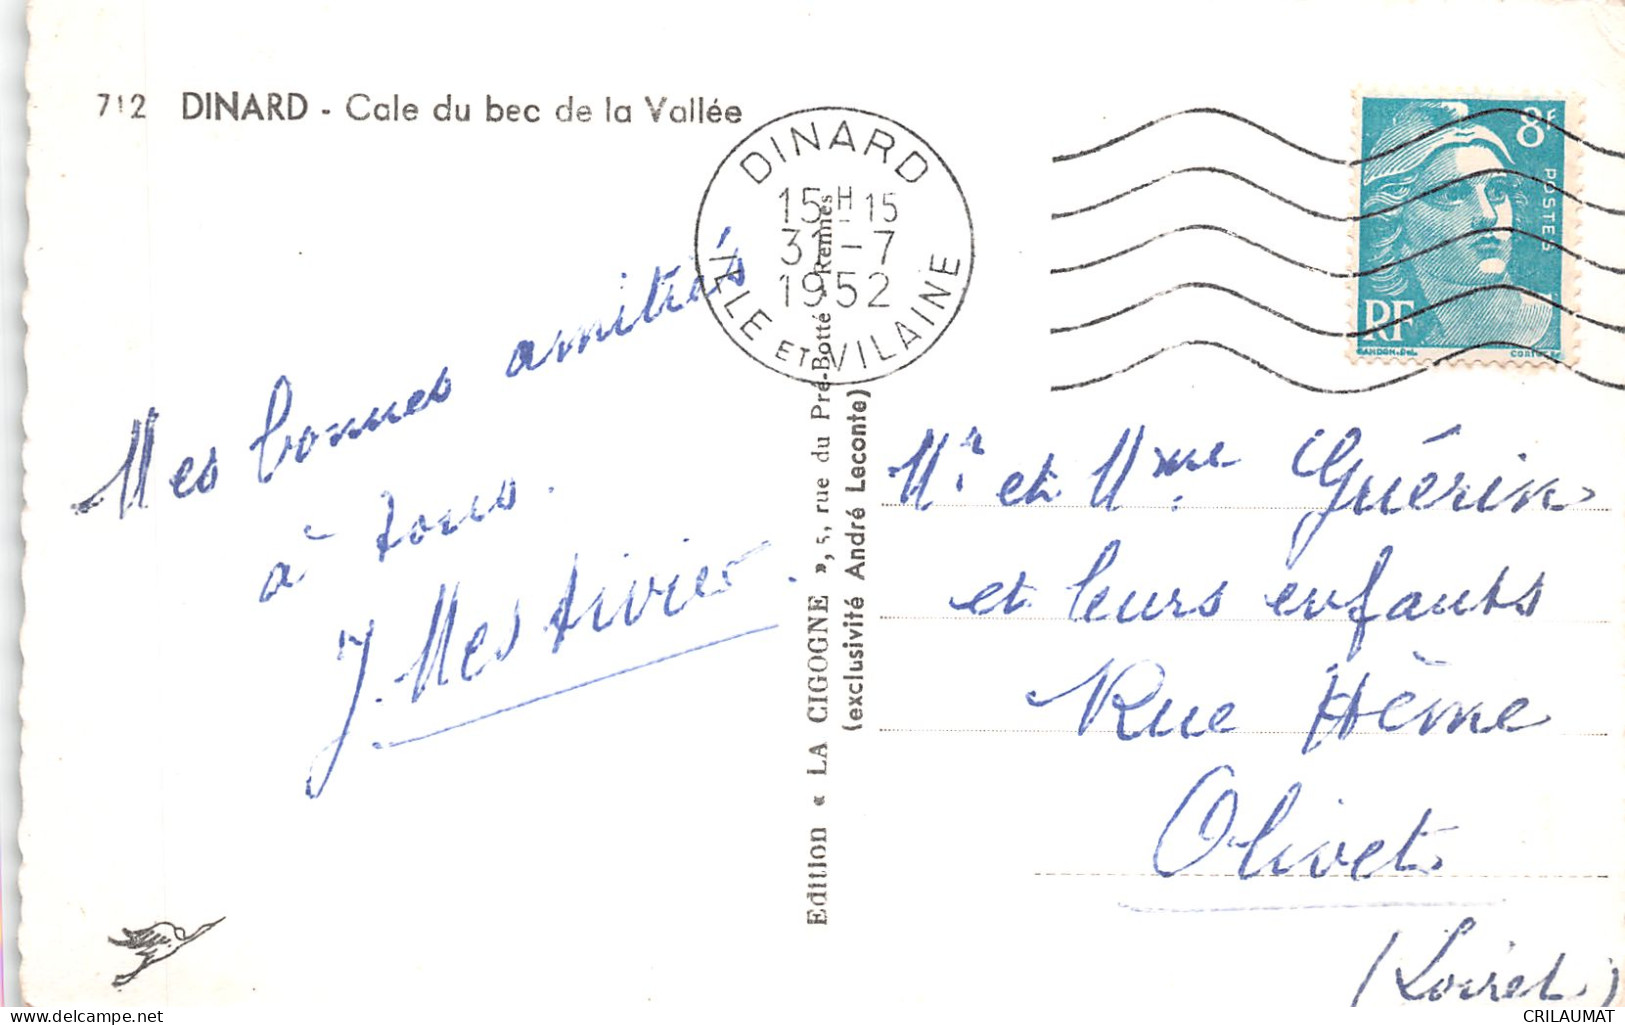 712 DINARD - Cale du bec de la Vallée
DINARD
15H15
31-7
1952
ILLE ET VILAINE
8F
POSTES
RF
GANDON-Del.
Mes bonnes amitiés
à tous.
J. Mestivier.
Edition « LA CIGOGNE », 5, rue du Pré-Botté - Rennes
(exclusivité André Leconte)
Mr. et Mme. Guérin
et leurs enfants
Rue Hème
Olivet
(Loiret)
delcampe.net
CRILAUMAT